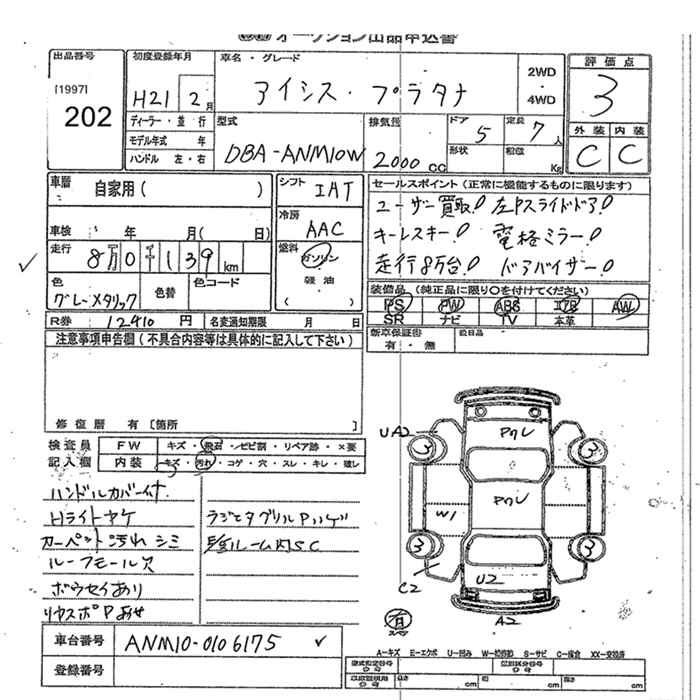 オークション出品申込書
出品番号
[1997]
202
初度登録年月
H21 2月
車名・グレード
アイシス・プラタナ
2WD
・
4WD
評価点
3
外装 内装
C C
ディーラー・並行
モデル年式 年
ハンドル 左・右
型式
DBA-ANM10W
排気量
2000CC
ドア 5
定員 7人
形状
積載 Kg
車歴 自家用( )
車検 年 月( 日)
走行 8万0千139km
色
グレーメタリック
色替
色コード
シフト IAT
冷房 AAC
燃料
ガソリン
軽油
( )
セールスポイント(正常に機能するものに限ります)
ユーザー買取! 左Pスライドドア!
キーレスキー! 電格ミラー!
走行8万台! ドアバイザー!
装備品(純正品に限り○を付けてください)
PS PW ABS エアB AW
SR ナビ TV 本革
R券 12410円 名変通知期限 月 日
新車保証書
有・無
後日品
注意事項申告欄(不具合内容等は具体的に記入して下さい)
修復歴 有[箇所
検査員
記入欄
FW キズ・飛石・ヒビ割・リペア跡・×要
内装 キズ・汚れ・コゲ・穴・スレ・キレ・破レ
ハンドルカバー付
Hライトヤケ
カーペット汚れシミ
ルーフモール欠
ボウセイあり
リヤスポPあせ
ラジエタグリルPハゲ
室ルーム内SC
UA2
Pクレ
3 3
Pクレ
W1
3 3
C2
U2
A2
有
スペア
車台番号 ANM10-0106175
登録番号
A-キズ E-エクボ U-凹み W-補修跡 S-サビ C-腐食 XX-交換済
型式指定番号
類別区分番号
長さ cm 幅 cm 高さ cm